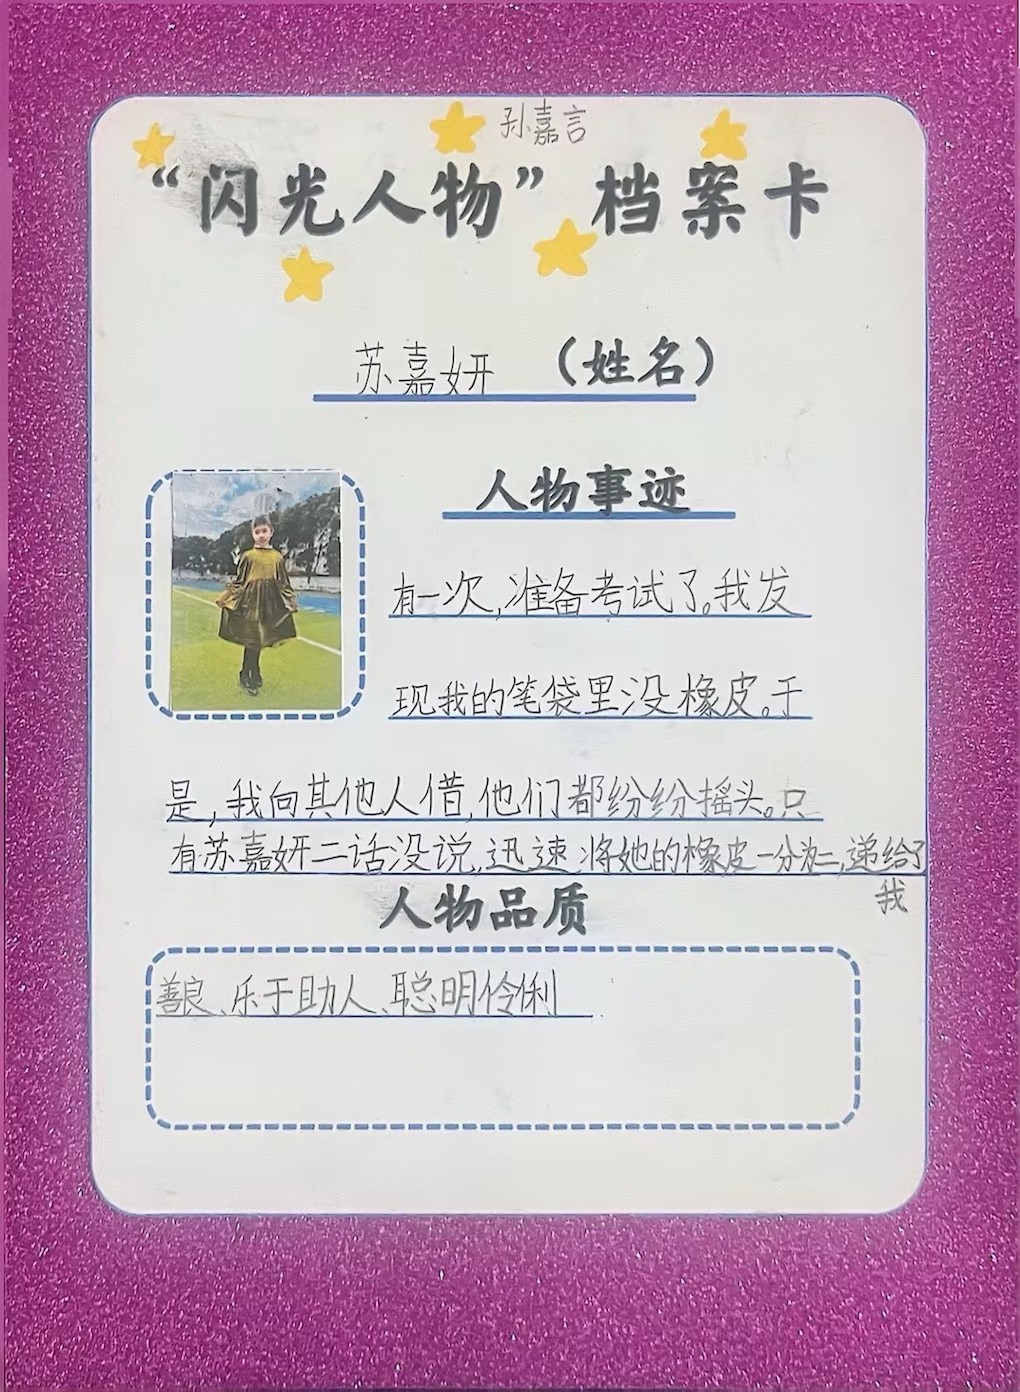 孙嘉言
“闪光人物”档案卡
苏嘉妍（姓名）
人物事迹
有一次，准备考试了。我发
现我的笔袋里没橡皮。于
是，我向其他人借，他们都纷纷摇头。只
有苏嘉妍二话没说，迅速将她的橡皮一分为二，递给了
我
人物品质
善良、乐于助人、聪明伶俐